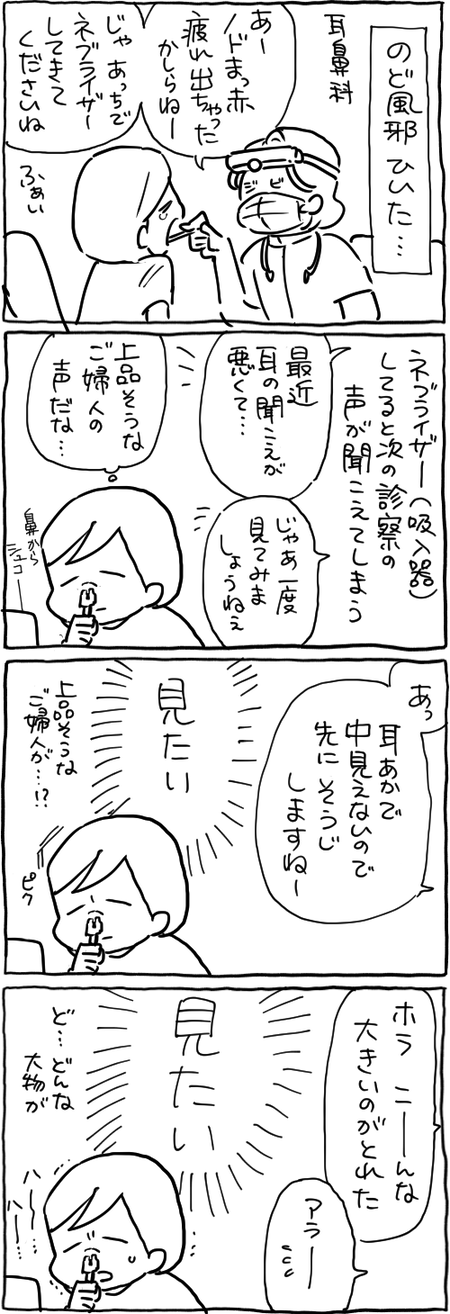 のど風邪 ひいた…
耳鼻科
あー
ノドまっ赤
疲れ出ちゃった
かしらねー
じゃ あっちで
ネブライザー
してきて
くださいね
ふぁい
ネブライザー(吸入器)
してると次の診察の
声が聞こえてしまう
最近
耳の聞こえが
悪くて…
じゃあ一度
見てみま
しょうねぇ
上品そうな
ご婦人の
声だな…
鼻から
シュコー
あっ
耳あかで
中見えないので
先に そうじ
しますねー
見たい
上品そうな
ご婦人が…!?
ピク
ホラ こーんな
大きいのがとれた
アラー
見たい
ど…どんな
大物が
ハー…
ハー…